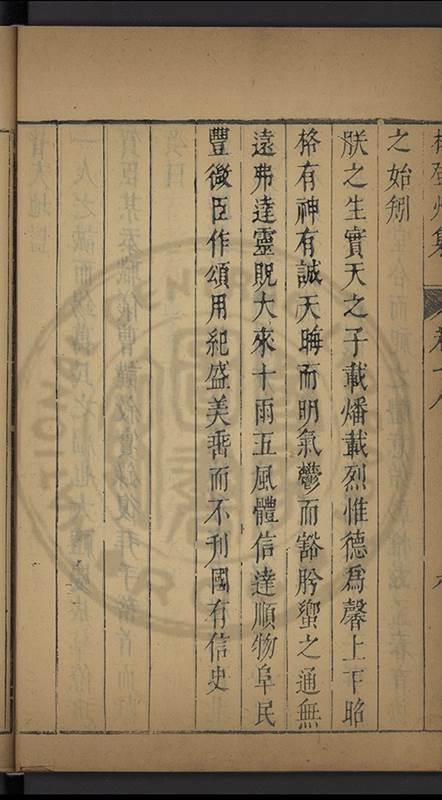 之始刱
朕之生實天之子載燔載烈惟德爲馨上下昭
格有神有誠天晦而明氣鬱而豁肸蠁之通無
遠弗達靈貺大來十雨五風體信達順物阜民
豐微臣作頌用紀盛美垂而不刊國有信史